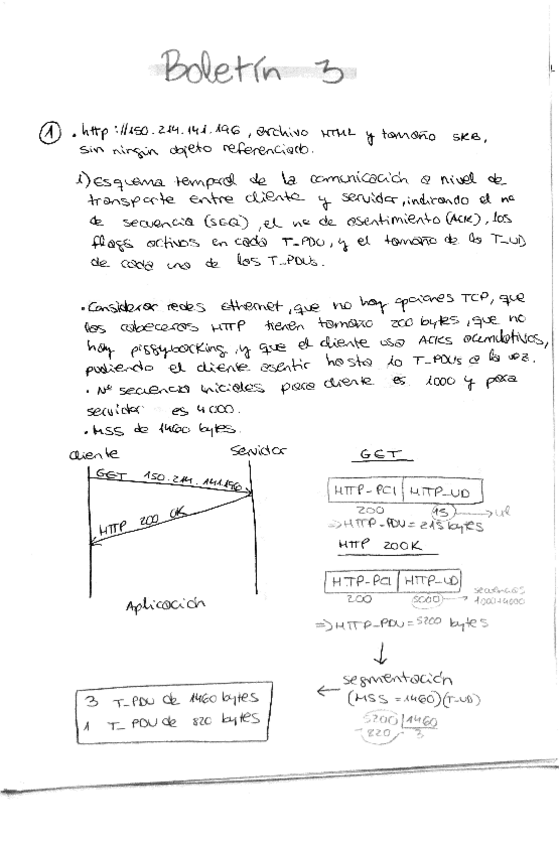 Boletín 3
① . http://150.214.141.196, archivo HTML y tamaño 5KB,
sin ningún objeto referenciado.
1) Esquema temporal de la comunicación a nivel de
transporte entre cliente y servidor, indicando el nº
de secuencia (SEQ), el nº de asentimiento (ACK), los
flags activos en cada T_PDU, y el tamaño de la T_UD
de cada uno de los T_PDUs.
. Considerar redes Ethernet, que no hay opciones TCP, que
las cabeceras HTTP tienen tamaño 200 bytes, que no
hay piggybacking, y que el cliente usa ACKs acumulativos,
pudiendo el cliente asentir hasta 10 T_PDUs a la vez.
. Nº secuencia iniciales para cliente es 1000 y para
servidor es 4000.
. MSS de 1460 bytes.
cliente servidor
GET 150.214.141.196
HTTP 200 OK
Aplicación
GET
HTTP_PCI HTTP_UD
200 15 → url
⇒ HTTP_PDU = 215 bytes
HTTP 200K
HTTP_PCI HTTP_UD
200 5000
⇒ HTTP_PDU = 5200 bytes
segmentación
(MSS = 1460) (T_UD)
5200 1460
820 3
3 T_PDU de 1460 bytes
1 T_PDU de 820 bytes